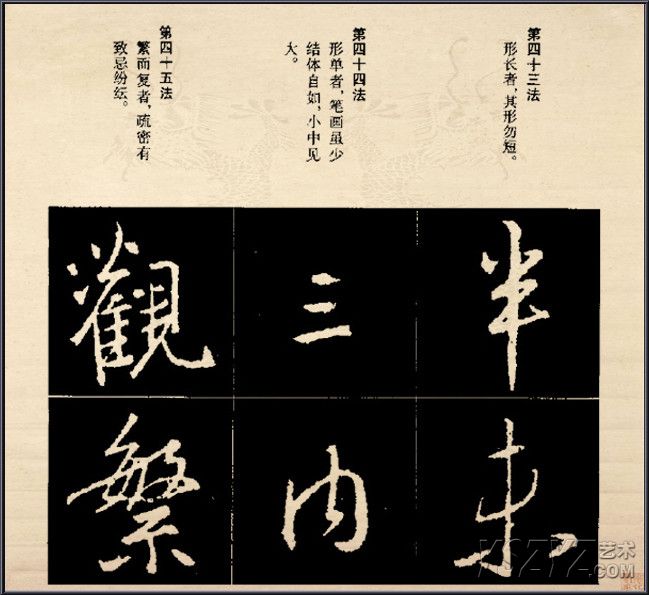 第四十三法
形长者，其形勿短。
第四十四法
形单者，笔画虽少
结体自如，小中见
大。
第四十五法
繁而复者，疏密有
致忌纷纭。
半
三
内
觀
繁
艺术
.COM